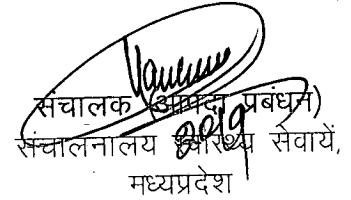 संचालक (आपदा प्रबंधन)
संचालनालय स्वास्थ्य सेवायें,
मध्यप्रदेश